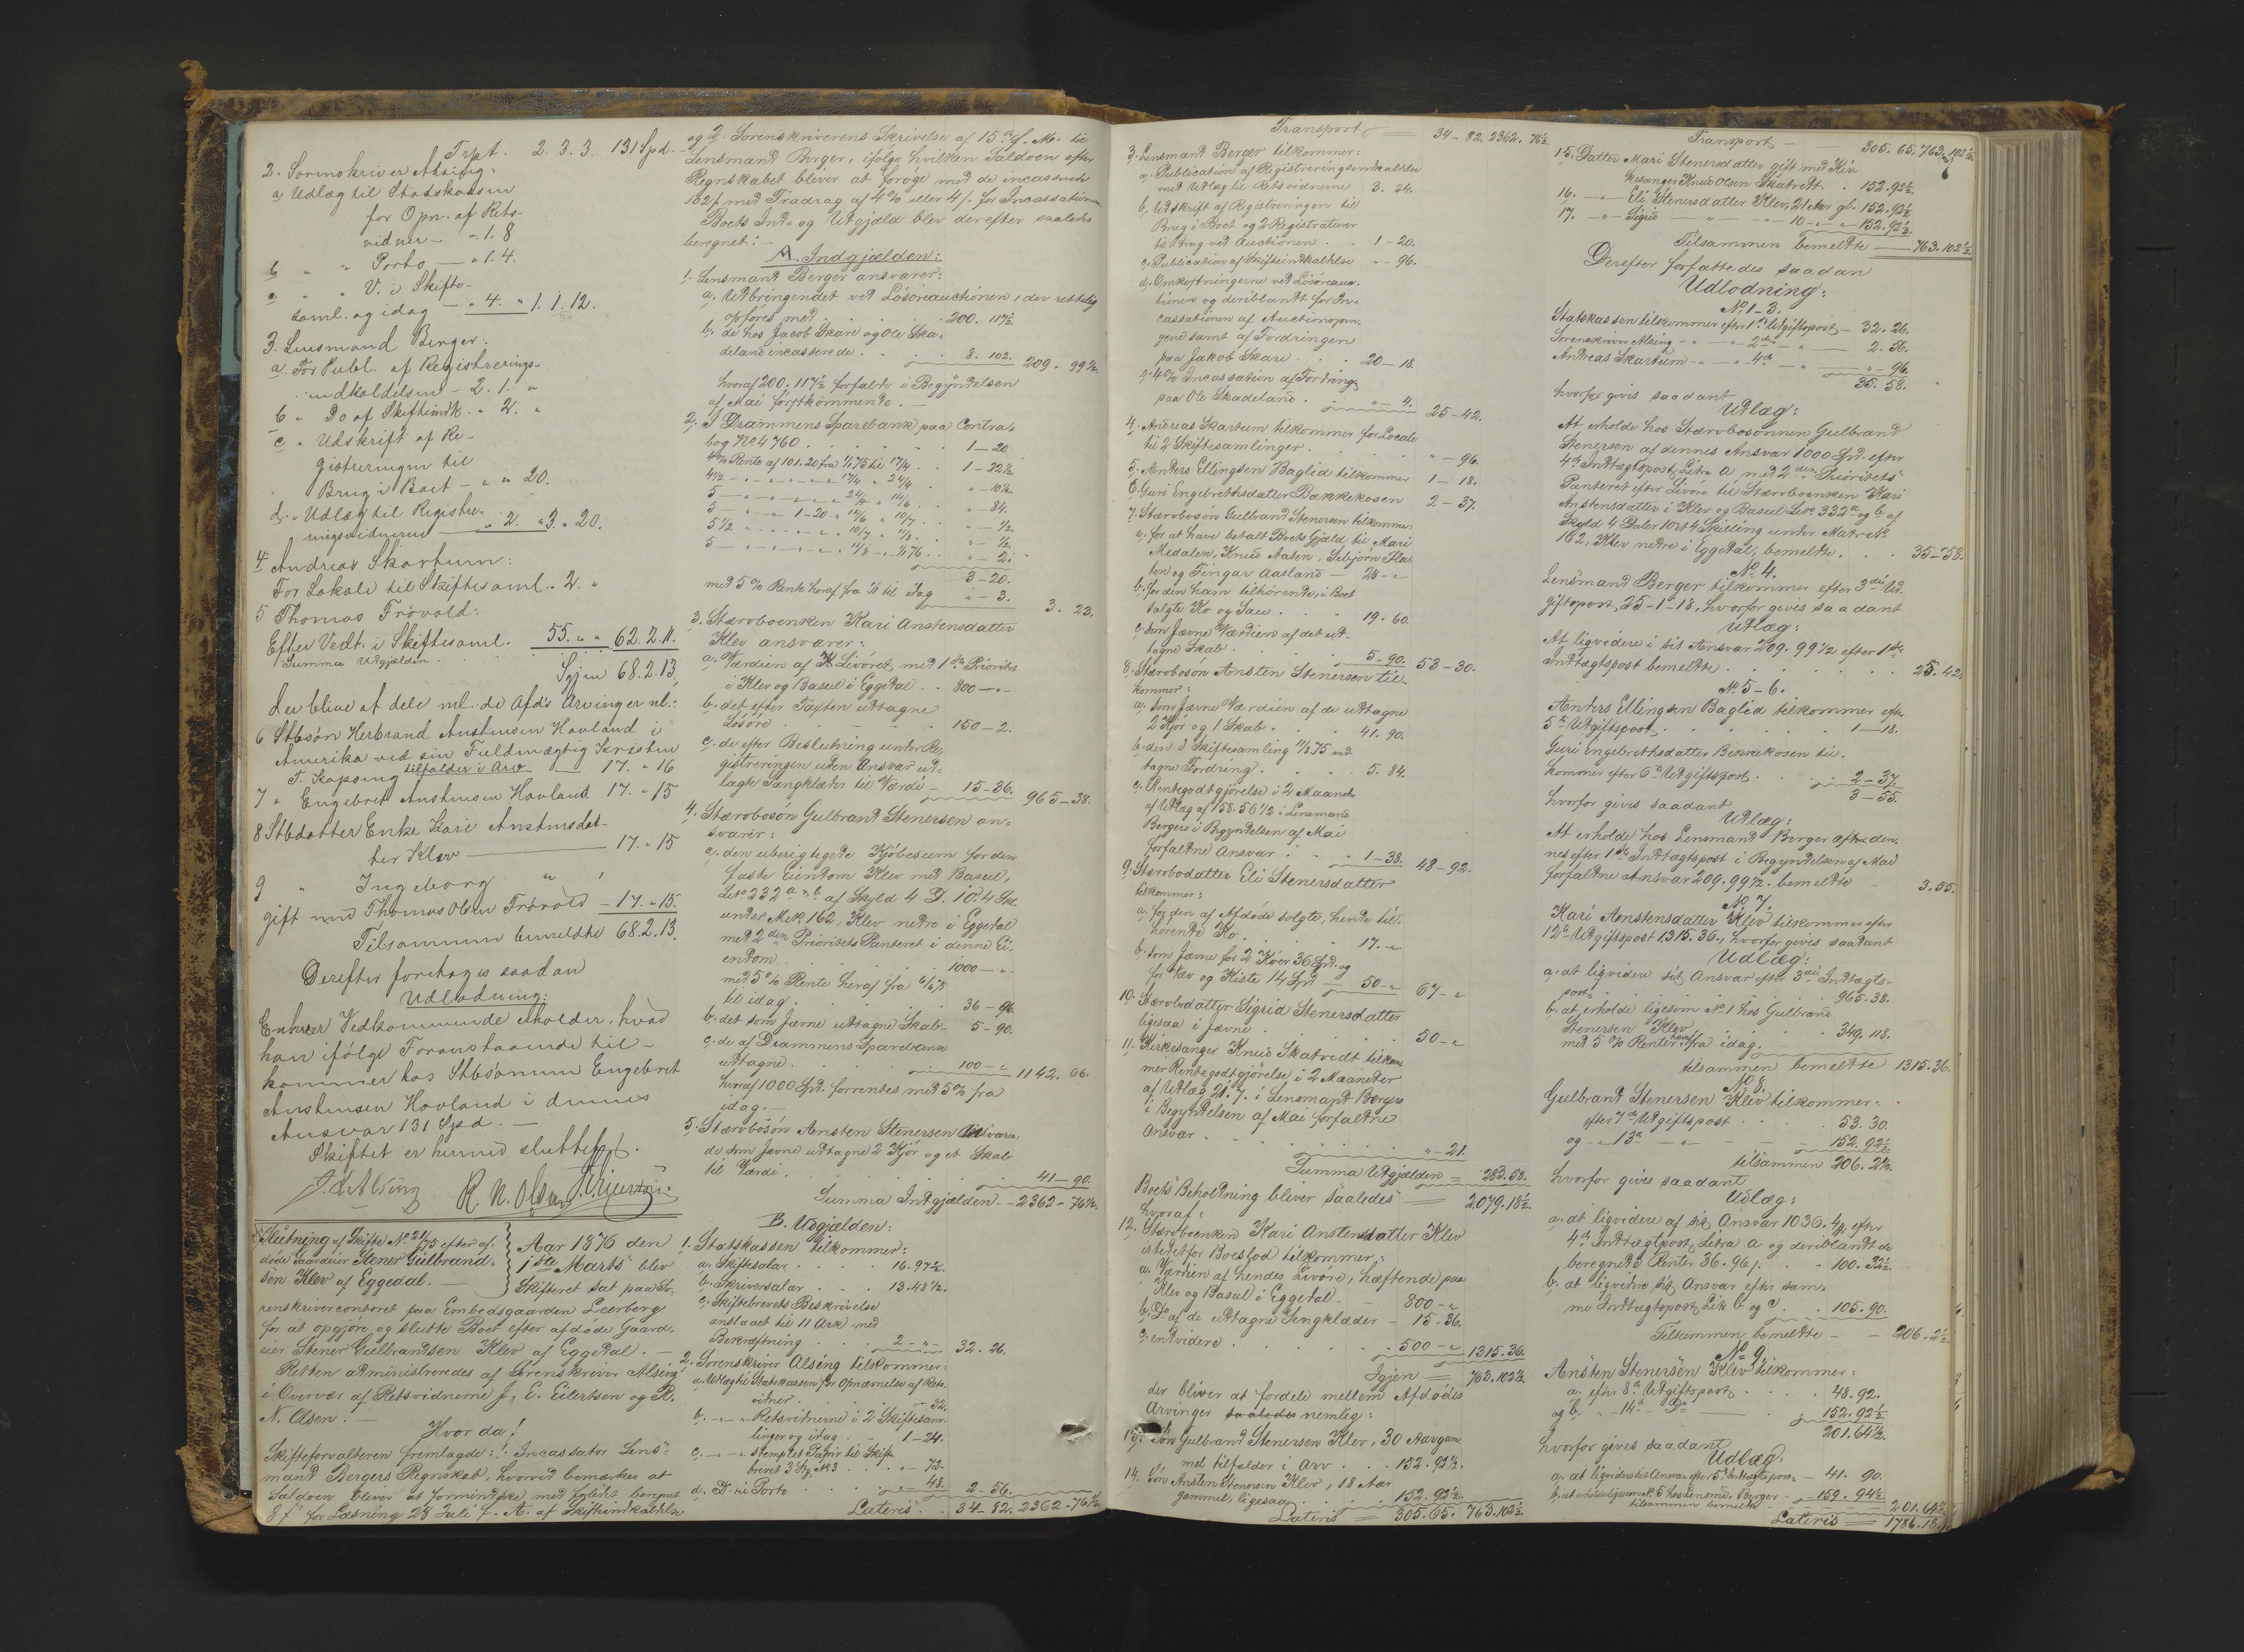 Trpt. 2. 3. 3. 131 Spd.
2. Sorenskriver Alsing:
a Udlæg til Statskassen
for Opn. af Rets-
vidner — „ 1. 8
b „ „ Porto — „ 1. 4.
c „ „ V. i Skifte-
saml. og idag — „ 4. „ 1. 1. 12.
3. Lensmand Berger:
a. For Publ. af Registrerings-
indkaldelsen - 2. 1. „
b „ Do af Skifteindk. „ 2. „
c „ Udskrift af Re-
gistreringen til
Brug i Boet — „ „ 20.
d. „ Udlæg til Registre-
ringsvidnerne — „ 2. „ 3. „ 20.
4 Andreas Skartum:
For Lokale til Skiftesaml. „ 2. „
5 Thomas Frøvold:
Efter Vedt. i Skiftesaml. 55. „ „ 62. 2. 11.
Summa Udgjælden
Igjen 68. 2. 13.
der blive at dele ml. de Afd's Arvinger nl.:
6 Stbsøn Herbrand Anstensen Havland i
Amerika ved sin Fuldmægtig Kristen
T. Kopseng tilfalder i Arv — 17. „ 16
7 „ Engebret Anstensen Havland 17. „ 15
8 Stbdatter Enke Kari Anstensdat-
ter Klev — 17. „ 15
9 „ Ingeborg „
gift med Thomas Olsen Frøvold — 17. „ 15.
Tilsammen bemeldte 68. 2. 13.
Derefter foretages saadan
Udlodning:
Enhver Vedkommende erholder, hvad
han ifølge Foranstaaende til-
kommer hos Stbsønnen Engebret
Anstensen Havland i dennes
Ansvar 131 Spd. —
Skiftet er hermed sluttet.
Alsing R. N. Olsen
Slutning af Skifte No 21/75 efter af-
døde Gaardeier Stener Gulbrand-
sen Klev af Eggedal. —
Aar 1876 den
1ste Marts blev
Skifteret sat paa So-
renskrivercontoret paa Embedsgaarden Leerberg
for at opgjøre og slutte Boet efter afdøde Gaard-
eier Stener Gulbrandsen Klev af Eggedal. —
Retten administreredes af Sorenskriver Alsing
i Overvær af Retsvidnerne J. E. Eilertsen og R.
N. Olsen. —
Hvor da!
Skifteforvalteren fremlagde: 1. Incassator Lens-
mand Bergers Regnskab, hvorved bemærkes at
Saldoen bliver at formindske med feilagt beregnet
8 f for Læsning 28 Juli f. A. af Skifteindkaldelsen
og 2. Sorenskriverens Skrivelse af 15de f. M. til
Lensmand Berger, ifølge hvilken Saldoen efter
Regnskabet bliver at forøge med de incasserede
102 f med Fradrag af 4% eller 4 f. for Incassationen.
Boets Ind- og Udgjæld blev derefter saaledes
beregnet: —
A. Indgjælden:
1. Lensmand Berger ansvarer:
a. Udbringendet ved Løsøreauctionen, der rettelig
opføres med . . . 200. 117½
b. de hos Jacob Skare og Ole Ska-
deland incasserede . . . 8. 102. 209. 99½.
hvoraf 200. 117½ forfaldt i Begyndelsen
af Mai førstkommende. —
2. I Drammens Sparebank paa Contra-
bog No. 4760 . . . 1—20
4% Rente af 101. 20 fra 1/1 75 til 17/4 . . 1—22½
4½ — „ — „ — „ 17/4 „ 24/4 . „—10½
5 — „ — „ — „ 24/4 „ 14/6 . . „—84.
5 — „ — „ 1-20 „ 14/6 „ 10/7 . . „—½
5½ „ — „ — „ 10/7 „ 11/8 . . „—½
5 — „ — „ — „ 11/8 — 1/1 76 . . „—2.
3—20.
med 5% Rente heraf fra 1/1 til idag „—3. 3. 23.
3. Stærboenken Kari Anstensdatter
Klev ansvarer:
a. Værdien af Livøret, med 1ste Prioritet
i Klev og Baseul i Eggedal . . 800—„—
b. det efter Taxten udtagne
Løsøre . . . 150—2.
c. de efter Beslutning under Re-
gistreringen uden Ansvar ud-
lagte Sengklæder til Værdi — 15—36. 965—38.
4. Stærbosøn Gulbrand Stenersen an-
svarer:
a. den uberigtigede Kjøbesum for den
faste Eiendom Klev med Baseul,
Lno 232 a og b af Skyld 4 D. 1 O. 4 Sk.
under Mtk. 162, Klev nedre i Eggedal
med 2den Prioritets Panteret i denne Ei-
endom . . . 1000—„.
med 5% Rente heraf fra 6/6 75
til idag . . . 36—96
b. det som Jævne udtagne Skab. 5—90.
c. de af Drammens Sparebank
udtagne . . . 100—„ 1142. 66.
hvoraf 1000 Spd. forrentes med 5% fra
idag. —
5. Stærbosøn Ansten Stenersen ansvarer
de som Jævne udtagne 2 Kjør og et Skab
til Værdi . . . 41—90.
Summa Indgjælden — 2362—76½.
B. Udgjælden:
1. Statskassen tilkommer:
a. Skiftesalær . . . 16. 97½.
b. Skriversalær . . . 13. 48½.
c. Skiftebrevets Beskrivelse
anslaaet til 11 Ark med
Bekræftning . . . 2—„— 32. 26.
2. Sorenskriver Alsing tilkommer:
a. Udlæg til Statskassen for Opnævnelse af Rets-
vidner . . . „—32.
b. — „ — Retsvidnerne i 2 Skiftesam-
linger og idag . . 1—24.
c. — „ — stemplet Papir til Skifte-
brevet 3 Sp. No 3 . . . „—72.
d. Do til Porto . . . „—48. 2—56.
Lateris . . 34—82. 2362—76½
Transport 34—82. 2362. 76½.
3. Lensmand Berger tilkommer:
a. Publication af Registreringsindkaldelsen
med Udlæg til Retsvidnerne 3. 24.
b. Udskrift af Registreringen til
Brug i Boet og 2 Registrationer
til Brug ved Auctionen . . 1—20.
c. Publication af Skifteindkaldelse „—96.
d. Omkostningerne ved Løsøreauc-
tionen og deriblandt for In-
cassationen af Auctionspen-
gene samt af Fordringen
paa Jakob Skare . . . 20—18
e. 4% Incassation af Fordring
paa Ole Skadeland . . „—4. 25—42.
4. Andreas Skartum tilkommer for Locale
til 2 Skiftesamlinger . . . „—96.
5. Anders Ellingsen Baglid tilkommer 1—18.
6. Guri Engebrethsdatter Bakkekosen 2—37.
7. Stærbosøn Gulbrand Stenersen tilkommer:
a. for at have betalt Boets Gjæld til Mari
Medalen, Knud Aasen, Sebjørn Fla-
ten og Fingar Aasland — 28—„
b. for den ham tilhørende, i Boet
solgte Ko og Sau . . . 19. 60.
c. som Jævne Værdien af det ud-
tagne Skab . . . 5—90. 53—30.
8. Stærbosøn Ansten Stenersen til-
kommer:
a. som Jævne Værdien af de udtagne
2 Kjør og 1 Skab . . . 41. 90.
b. den i Skiftesamling 11/8 75 ved-
tagne Fordring . . . 5. 84.
c. Rentegodtgjørelse i 2 Maaneder
af Udlæg af 158. 56½ i Lensmand
Bergers i Begyndelsen af Mai
forfaldne Ansvar . . . 1—38. 48—92.
9. Stærbodatter Eli Stenersdatter
tilkommer:
a. for den af Afdøde solgte, hende til-
hørende Ko . . . 17.—„
b. som Jævne for 2 Køer 36 Spd. og
for Væv og Kiste 14 Spd — 50—„ 67—„
10. Stærbodatter Sigrid Stenersdatter
ligesaa i Jævne . . . 50—„
11. Kirkesanger Knud Skatvedt tilkom-
mer Rentegodtgjørelse i 2 Maaneder
af Udlæg 21. 7. i Lensmand Bergers
i Begyndelsen af Mai forfaldne
Ansvar . . . „—21.
Summa Udgjælden = 283. 58.
Boets Beholdning bliver saaledes = 2079. 18½.
hvoraf:
12. Stærboenken Kari Anstensdatter Klev
istedetfor Boeslod tilkommer:
a. Værdien af hendes Livøre, hæftende paa
Klev og Baseul i Eggedal — 800—„
b. Do. af de udtagne Sengklæder — 15—36.
c. endvidere . . . 500—„ 1315. 36.
Igjen = 763. 102½.
der bliver at fordele mellem Afdødes
Arvinger saaledes nemlig:
13. Søn Gulbrand Stenersen Klev, 30 Aar gam-
mel tilfalder i Arv . . . 152. 92½.
14. Søn Ansten Stenersen Klev, 18 Aar
gammel, ligesaa . . . 152. 92½.
Lateris = 305. 65. 763. 102½.
Transport — 305. 65. 763. 102½.
15. Datter Mari Stenersdatter gift med Kir-
kesanger Knud Olsen Skatvedt . . 152. 92½.
16. — „ — Eli Stenersdatter Klev, 21 Aar gl. 152. 92½
17. — „ — Sigrid — „ — „ — 10 — „ — „ 152. 92½.
Tilsammen bemeldte — 763. 102½
Derefter forfattedes saadan
Udlodning:
No. 1—3.
Statskassen tilkommer efter 1ste Udgiftspost — 32. 26.
Sorenskriver Alsing — „ — 2den — „ — 2. 56.
Andreas Skartum — „ — 4de — „ — „—96.
35. 58.
hvorfor gives saadant
Udlæg:
At erholde hos Stærbosønnen Gulbrand
Stenersen af dennes Ansvar 1000 Spd. efter
4de Indtægtspost Litra a med 2den Prioritets
Panteret efter Livøre til Stærboenken Kari
Anstensdatter i Klev og Baseul Lno 232 a og b af
Skyld 4 Daler 1 Ort 4 Skilling under Matr. No
162, Klev nedre i Eggedal, bemeldte . . . 35—58.
No. 4.
Lensmand Berger tilkommer efter 3die Ud-
giftspost, 25—1—18, hvorfor gives saadant
Udlæg:
At ligvidere i sit Ansvar 209. 99½ efter 1ste
Indtægtspost bemeldte . . . 25. 42.
No. 5—6.
Anders Ellingsen Baglid tilkommer efter
5te Udgiftspost . . . 1—18.
Guri Engebrethsdatter Bekkekosen til-
kommer efter 6te Udgiftspost . . . 2—37.
3—55.
hvorfor gives saadant
Udlæg:
At erholde hos Lensmand Berger af hen den-
nes efter 1ste Indtægtspost i Begyndelsen af Mai
forfaldne Ansvar 209. 99½. bemeldte — 3. 55.
No. 7.
Kari Anstensdatter Klev tilkommer efter
12te Udgiftspost 1315. 36., hvorfor gives saadant
Udlæg:
a. at ligvidere sit Ansvar efter 3die Indtægts-
post . . . 965. 38.
b. at erholde ligesom No. 1 hos Gulbrand
Stenersen Klev . . . 349. 118.
med 5% Renter heraf fra idag. —
tilsammen bemeldte 1315. 36.
No. 8.
Gulbrand Stenersen Klev tilkommer:
efter 7de Udgiftspost . . . 53. 30.
og — „ 13de — „ — 152. 92½
tilsammen 206. 2½.
hvorfor gives saadant
Udlæg:
a. at ligvidere af sit Ansvar 1036. 96 efter
4de Indtægtspost Litra a og deriblandt de
beregnede Renter 36. 96 f. . . 100. 32½.
b. at ligvidere sit Ansvar efter sam-
me Indtægtspost Litr. b og c . . 105. 90.
Tilsammen bemeldte — — 206. 2½
No. 9.
Ansten Stenersen Klev tilkommer:
a. efter 8de Udgiftspost . . . 48. 92.
og b. — 14de — Do — 152. 92½.
201. 64½.
hvorfor gives saadant
Udlæg.
a. at ligvidere sit Ansvar efter 5te Indtægtspost — 41. 90.
b. at erholde ligesom No. 5 hos Lensmd. Berger — 159. 94½.
tilsammen bemeldte — 201. 64½
Lateris = 1786. 18.